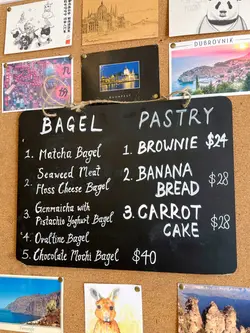 DUBROVNIK
BUDAPEST
BAGEL
1. Matcha Bagel
2. Seaweed Meat
Floss Cheese Bagel
3. Genmaicha with
Pistachio Yoghurt Bagel
4. Oraftine Bagel
5. Chocolate Mochi Bagel $40
PASTRY
1. BROWNIE $24
2. BANANA
BREAD $28
3. CARROT
CAKE $28